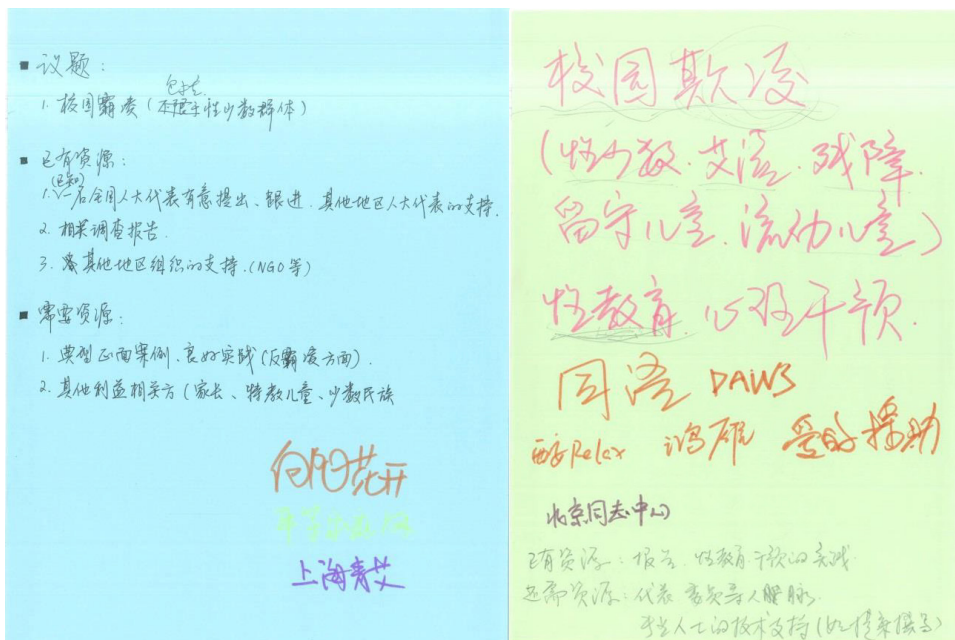 ■ 议题：
包括
1. 校园霸凌（不限于性少数群体）
■ 已有资源：
(已知)
1. 一名全国人大代表有意提出、跟进. 其他地区人大代表的支持.
2. 相关调查报告.
3. 其他地区组织的支持.(NGO等)
■ 需要资源：
1. 典型正面案例、良好实践(反霸凌方面).
2. 其他利益相关方(家长、特教儿童、少数民族
向阳花开
上海青艾
校园欺凌
(性少数. 艾滋. 残障.
留守儿童. 流动儿童)
性教育. 心理干预.
同语 DAWS
醉Relax 鸿雁 爱的援助
北京同志中心
已有资源: 报告. 性教育干预的实践
还需资源: 代表 委员等人脉.
专业人士的技术支持(如提案撰写)